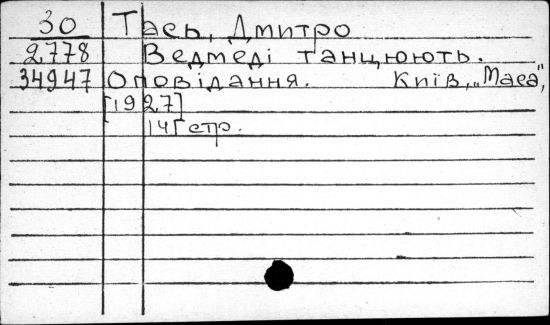 30 Тась, Дмитро
2778 Ведмеді танцюють.
34947 Оповідання. Київ, „Маса",
[1927]
стр.